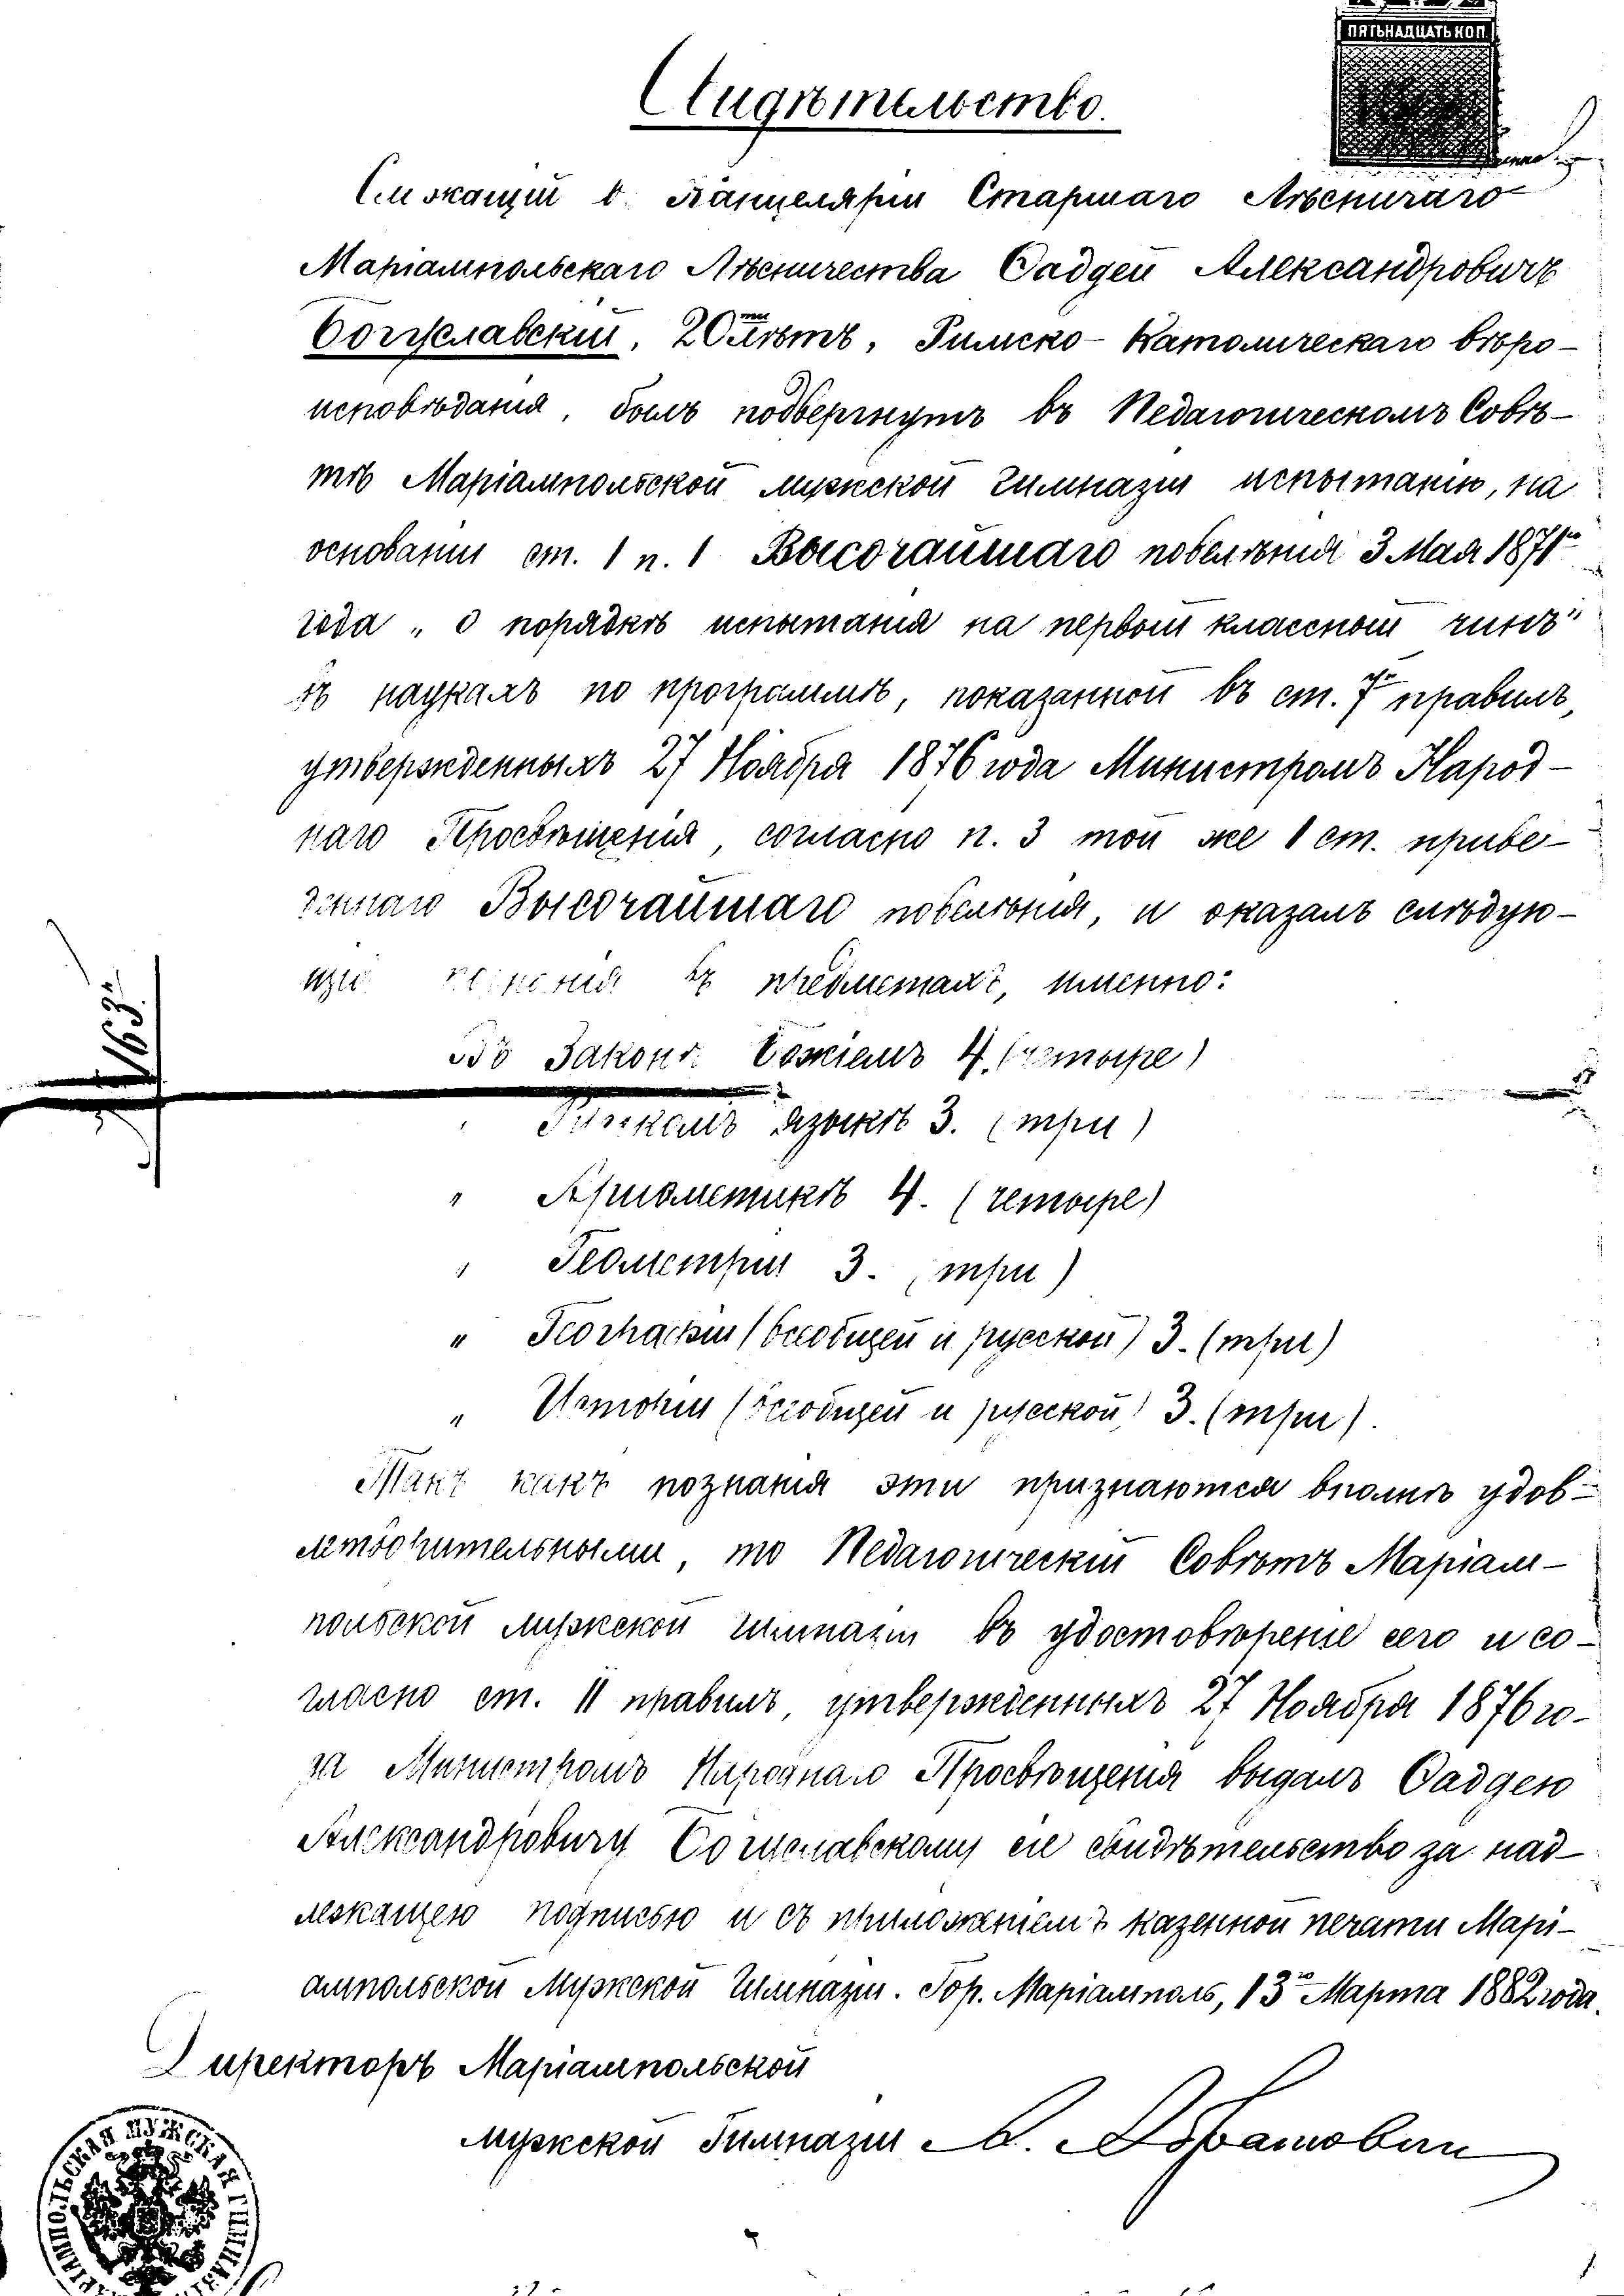 ПЯТЬНАДЦАТЬ КОП.
Свидѣтельство.
Служащій в Канцеляріи Старшаго Лѣсничаго
Маріампольскаго Лѣсничества Фаддей Александровичъ
Богуславскій, 20ти лѣтъ, Римско-Католическаго вѣро-
исповѣданія, былъ подвергнутъ въ Педагогическомъ Совѣ-
тѣ Маріампольской мужской гимназіи испытанію, на
основаніи ст. 1 п. 1 Высочайшаго повелѣнія 3 Мая 1871го
года „о порядкѣ испытанія на первый классный чинъ"
въ наукахъ по программѣ, показанной въ ст. 7й правилъ,
утвержденныхъ 27 Ноября 1876 года Министромъ Народ-
наго Просвѣщенія, согласно п. 3 той же 1 ст. приве-
деннаго Высочайшаго повелѣнія, и оказалъ слѣдую-
щія познанія въ предметахъ, именно:
163.
Въ Законѣ Божіемъ 4. (четыре)
" Русскомъ языкѣ 3. (три)
" Ариѳметикѣ 4. (четыре)
" Геометріи 3. (три)
" Географіи (всеобщей и русской) 3. (три)
" Исторіи (всеобщей и русской) 3. (три).
Такъ какъ познанія эти признаются вполнѣ удов-
летворительными, то Педагогическій Совѣтъ Маріам-
польской мужской гимназіи въ удостовѣреніе сего и со-
гласно ст. 11 правилъ, утвержденныхъ 27 Ноября 1876 го-
да Министромъ Народнаго Просвѣщенія выдалъ Фаддею
Александровичу Богуславскому сіе свидѣтельство за над-
лежащею подписью и съ приложеніемъ казенной печати Марі-
ампольской Мужской Гимназіи. Гор. Маріамполь, 13го Марта 1882 года.
Директоръ Маріампольской
мужской Гимназіи
МАРІАМПОЛЬСКАЯ МУЖСКАЯ ГИМНАЗІЯ